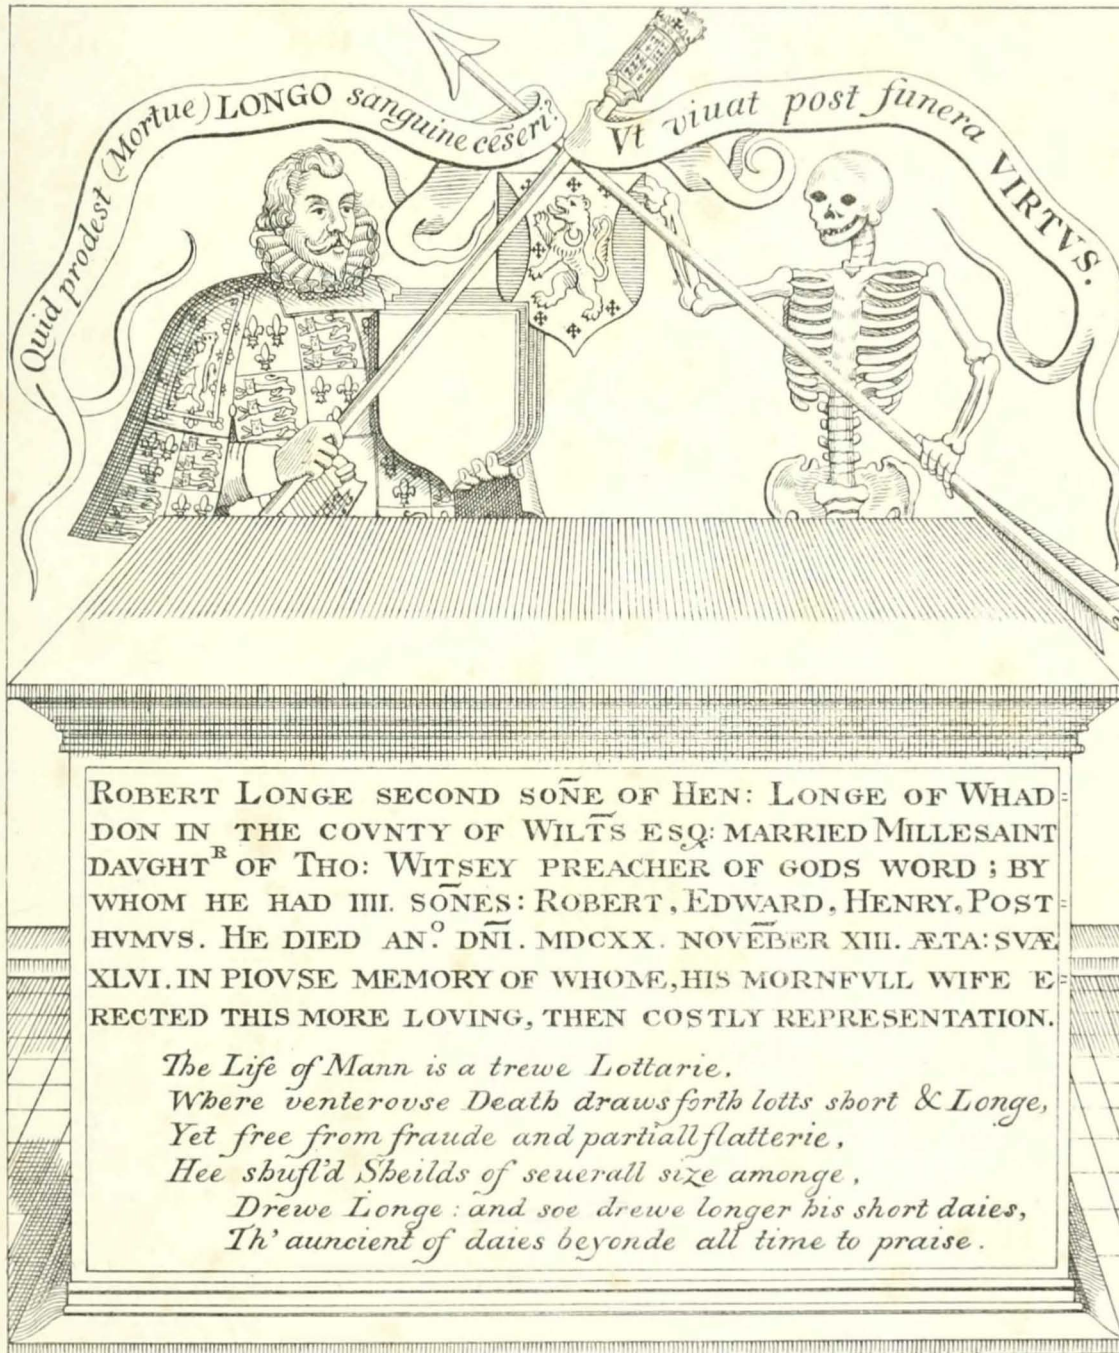 Quid prodest (Mortue) LONGO sanguine cēserī?
Vt viuat post funera VIRTVS.
ROBERT LONGE SECOND SOÑE OF HEN: LONGE OF WHAD=
DON IN THE COVNTY OF WILT̄S ESQ: MARRIED MILLESAINT
DAVGHTᴿ OF THO: WITSEY PREACHER OF GODS WORD ; BY
WHOM HE HAD IIII. SOÑES: ROBERT, EDWARD, HENRY, POST=
HVMVS. HE DIED AN.º DÑI. MDCXX. NOVĒBER XIII. ÆTA: SVÆ
XLVI. IN PIOVSE MEMORY OF WHOME, HIS MORNFVLL WIFE E=
RECTED THIS MORE LOVING, THEN COSTLY REPRESENTATION.
The Life of Mann is a trewe Lottarie.
Where venterovse Death draws forth lotts short & Longe,
Yet free from fraude and partiall flatterie,
Hee shufl'd Sheilds of seuerall size amonge,
Drewe Longe : and soe drewe longer his short daies,
Th' auncient of daies beyonde all time to praise.